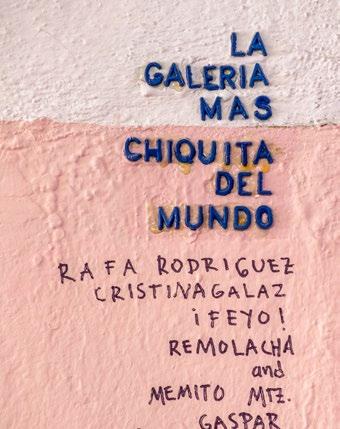 LA
GALERIA
MAS
CHIQUITA
DEL
MUNDO
RAFA RODRIGUEZ
CRISTINA GALAZ
¡FEYO!
REMOLACHA
and
MEMITO MTZ.
GASPAR